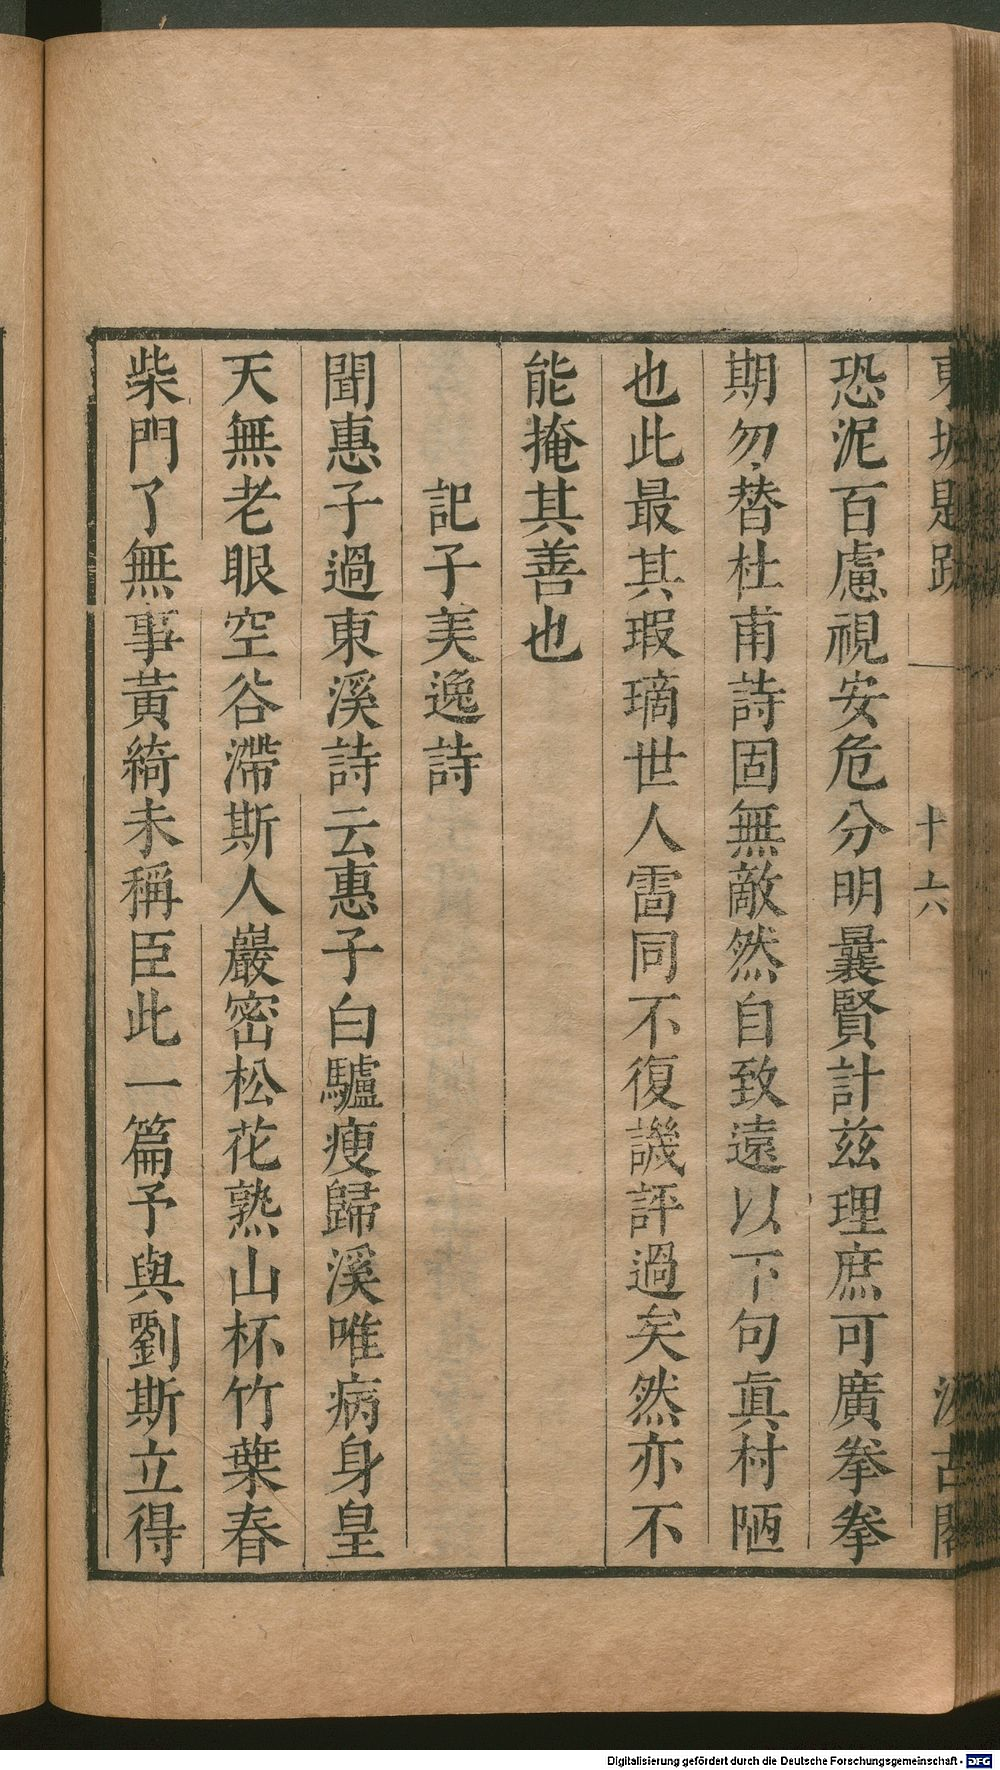 東坡題跋 十六 汲古閣
恐泥百慮視安危分明曩賢計茲理庶可廣拳拳
期勿替杜甫詩固無敵然自致遠以下句真村陋
也此最其瑕謫世人雷同不復譏評過矣然亦不
能掩其善也
記子美逸詩
聞惠子過東溪詩云惠子白驢瘦歸溪唯病身皇
天無老眼空谷滯斯人巖密松花熟山杯竹葉春
柴門了無事黃綺未稱臣此一篇予與劉斯立得
Digitalisierung gefördert durch die Deutsche Forschungsgemeinschaft - DFG